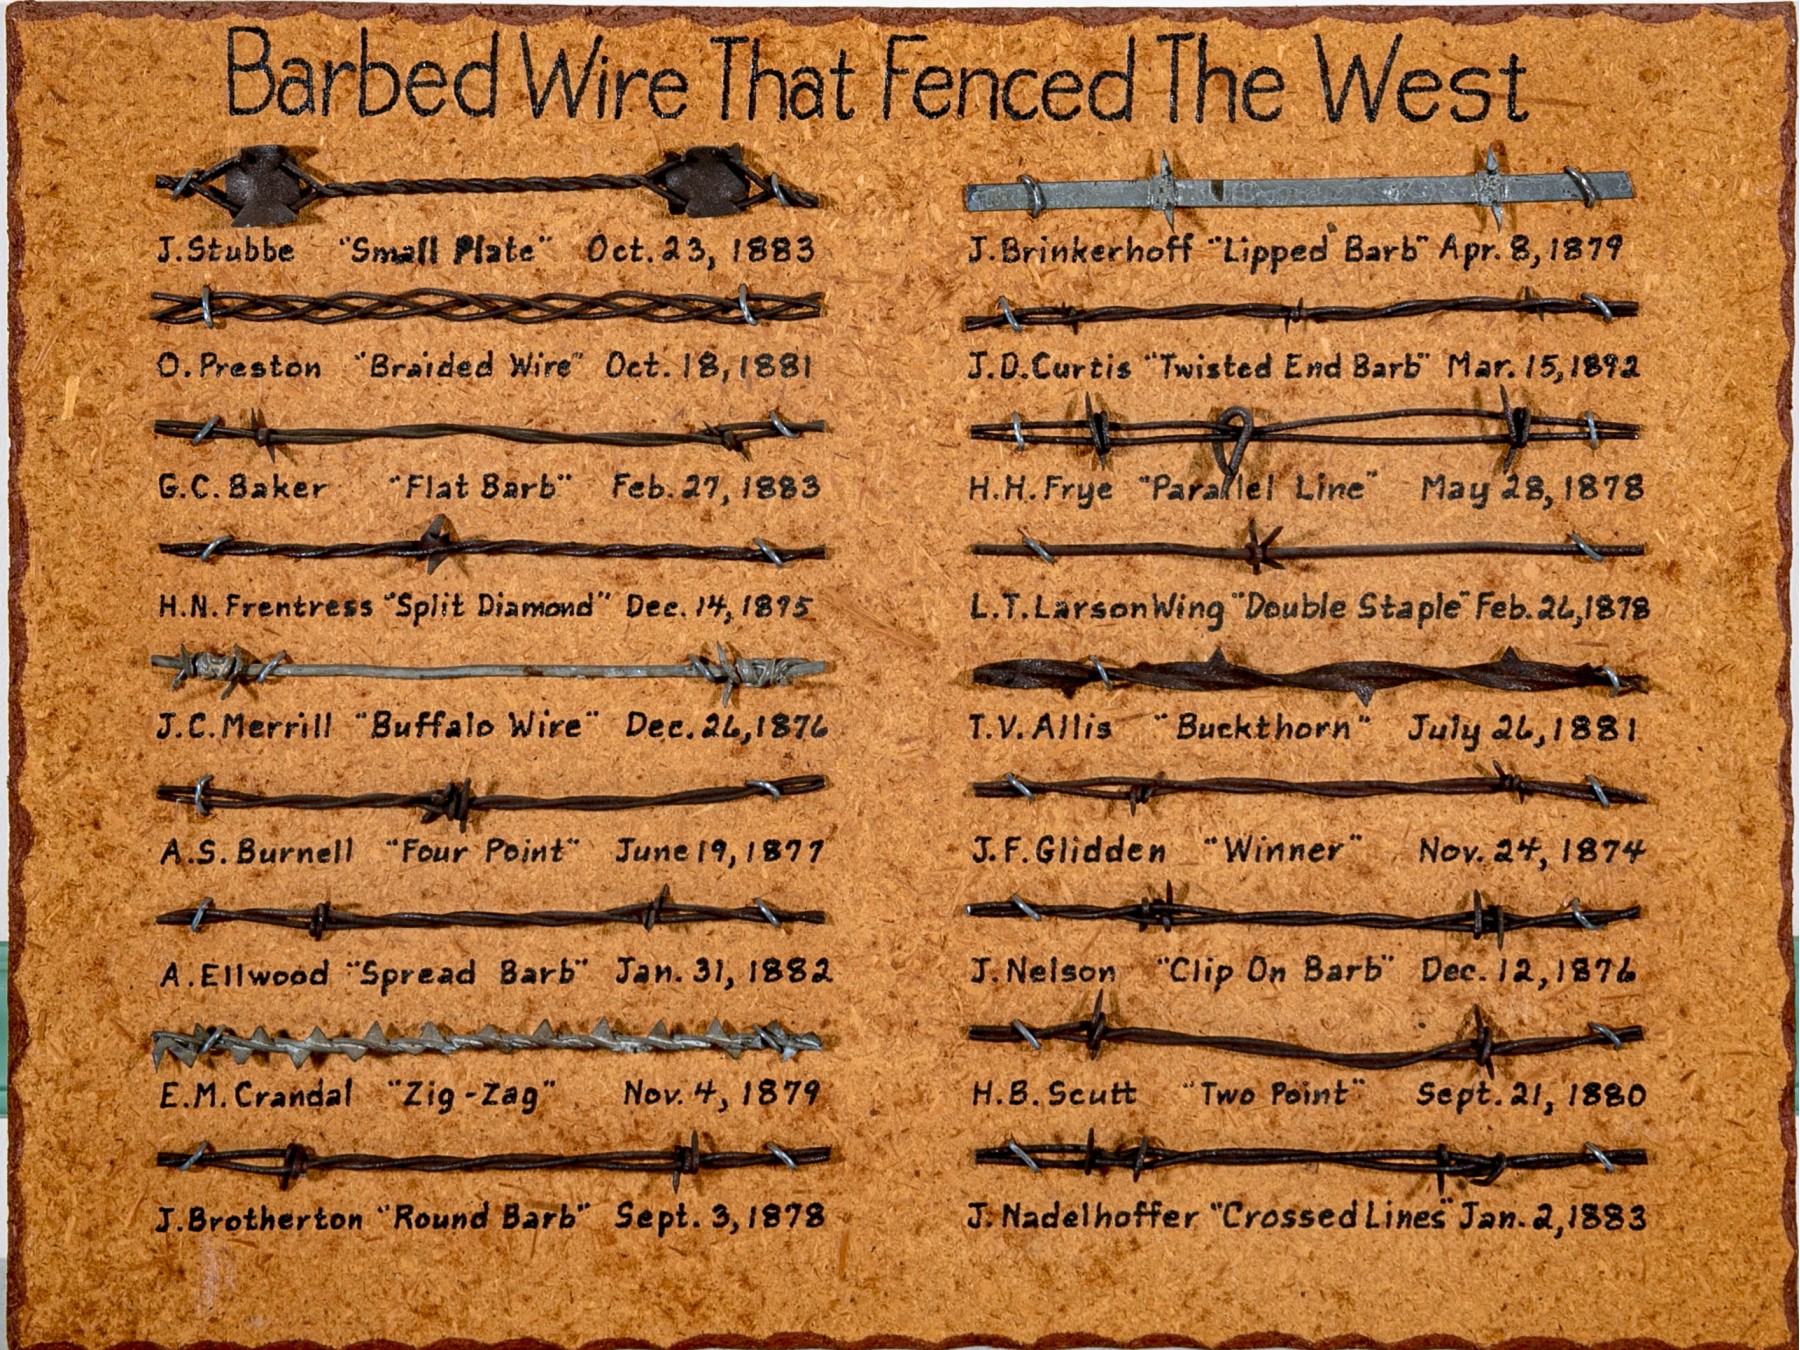 Barbed Wire That Fenced The West
J.Stubbe "Small Plate" Oct. 23, 1883
O. Preston "Braided Wire" Oct. 18, 1881
G.C. Baker "Flat Barb" Feb. 27, 1883
H.N. Frentress "Split Diamond" Dec. 14, 1875
J.C. Merrill "Buffalo Wire" Dec. 26, 1876
A.S. Burnell "Four Point" June 19, 1877
A. Ellwood "Spread Barb" Jan. 31, 1882
E.M. Crandal "Zig-Zag" Nov. 4, 1879
J. Brotherton "Round Barb" Sept. 3, 1878
J. Brinkerhoff "Lipped Barb" Apr. 8, 1879
J.D. Curtis "Twisted End Barb" Mar. 15, 1892
H.H. Frye "Parallel Line" May 28, 1878
L.T. Larson Wing "Double Staple" Feb. 26, 1878
T.V. Allis "Buckthorn" July 26, 1881
J.F. Glidden "Winner" Nov. 24, 1874
J. Nelson "Clip On Barb" Dec. 12, 1876
H.B. Scutt "Two Point" Sept. 21, 1880
J. Nadelhoffer "Crossed Lines" Jan. 2, 1883